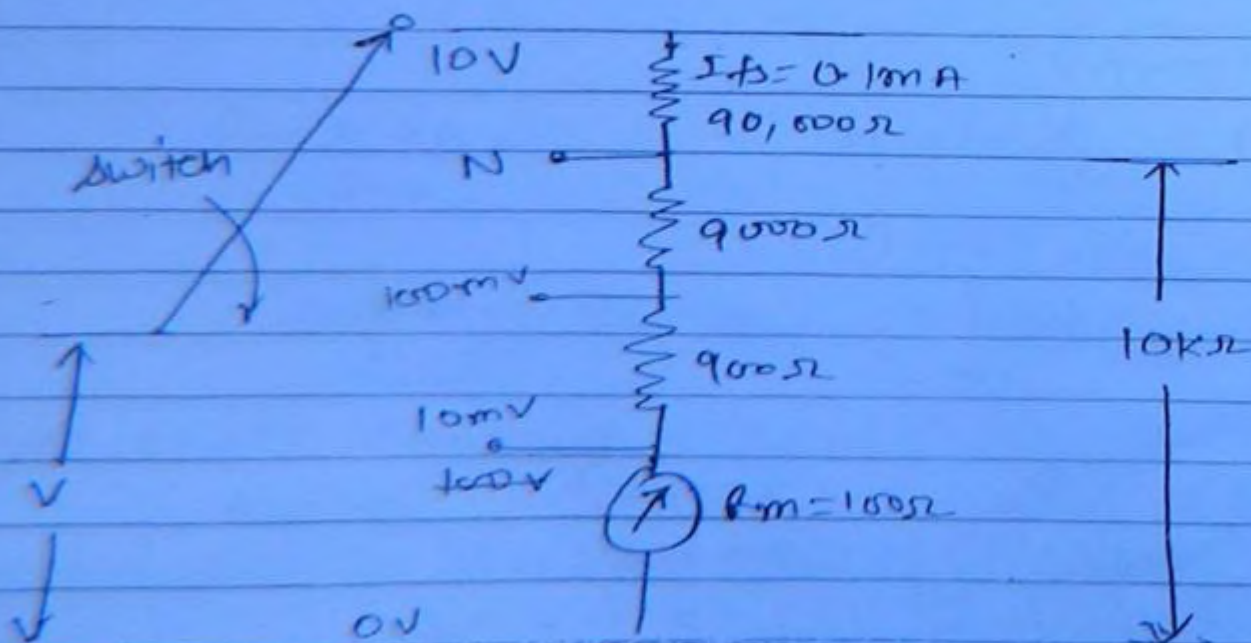 10V
Ifs = 0.1mA
90,000Ω
switch
N
9000Ω
100mV
10kΩ
900Ω
10mV
V
Rm = 100Ω
0V